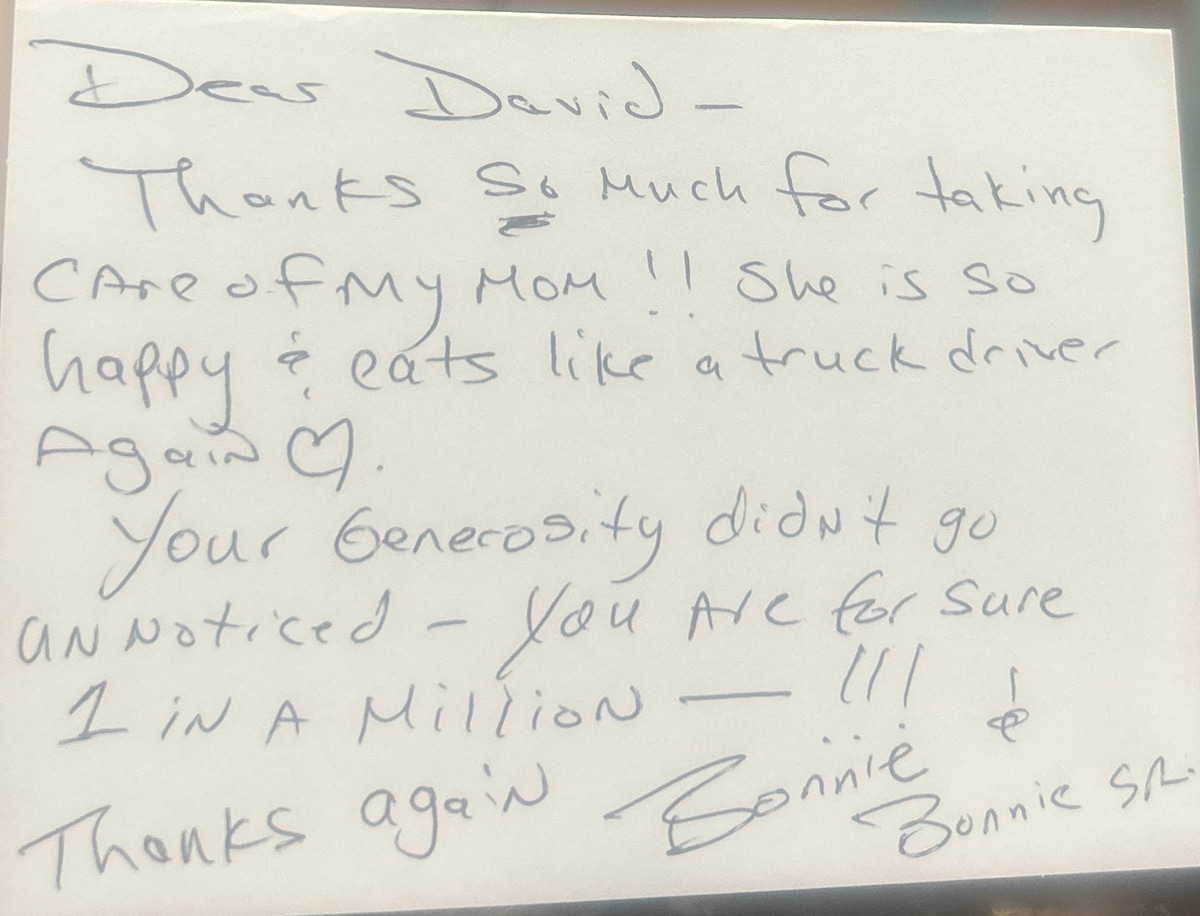 Dear David -
Thanks So Much for taking
CAre of My MOM !! She is so
happy & eats like a truck driver
Again ♡.
Your Generosity didn't go
unnoticed - You Are for sure
1 iN A MillioN — !!! &
Thanks agaiN Bonnie Bonnie SR.